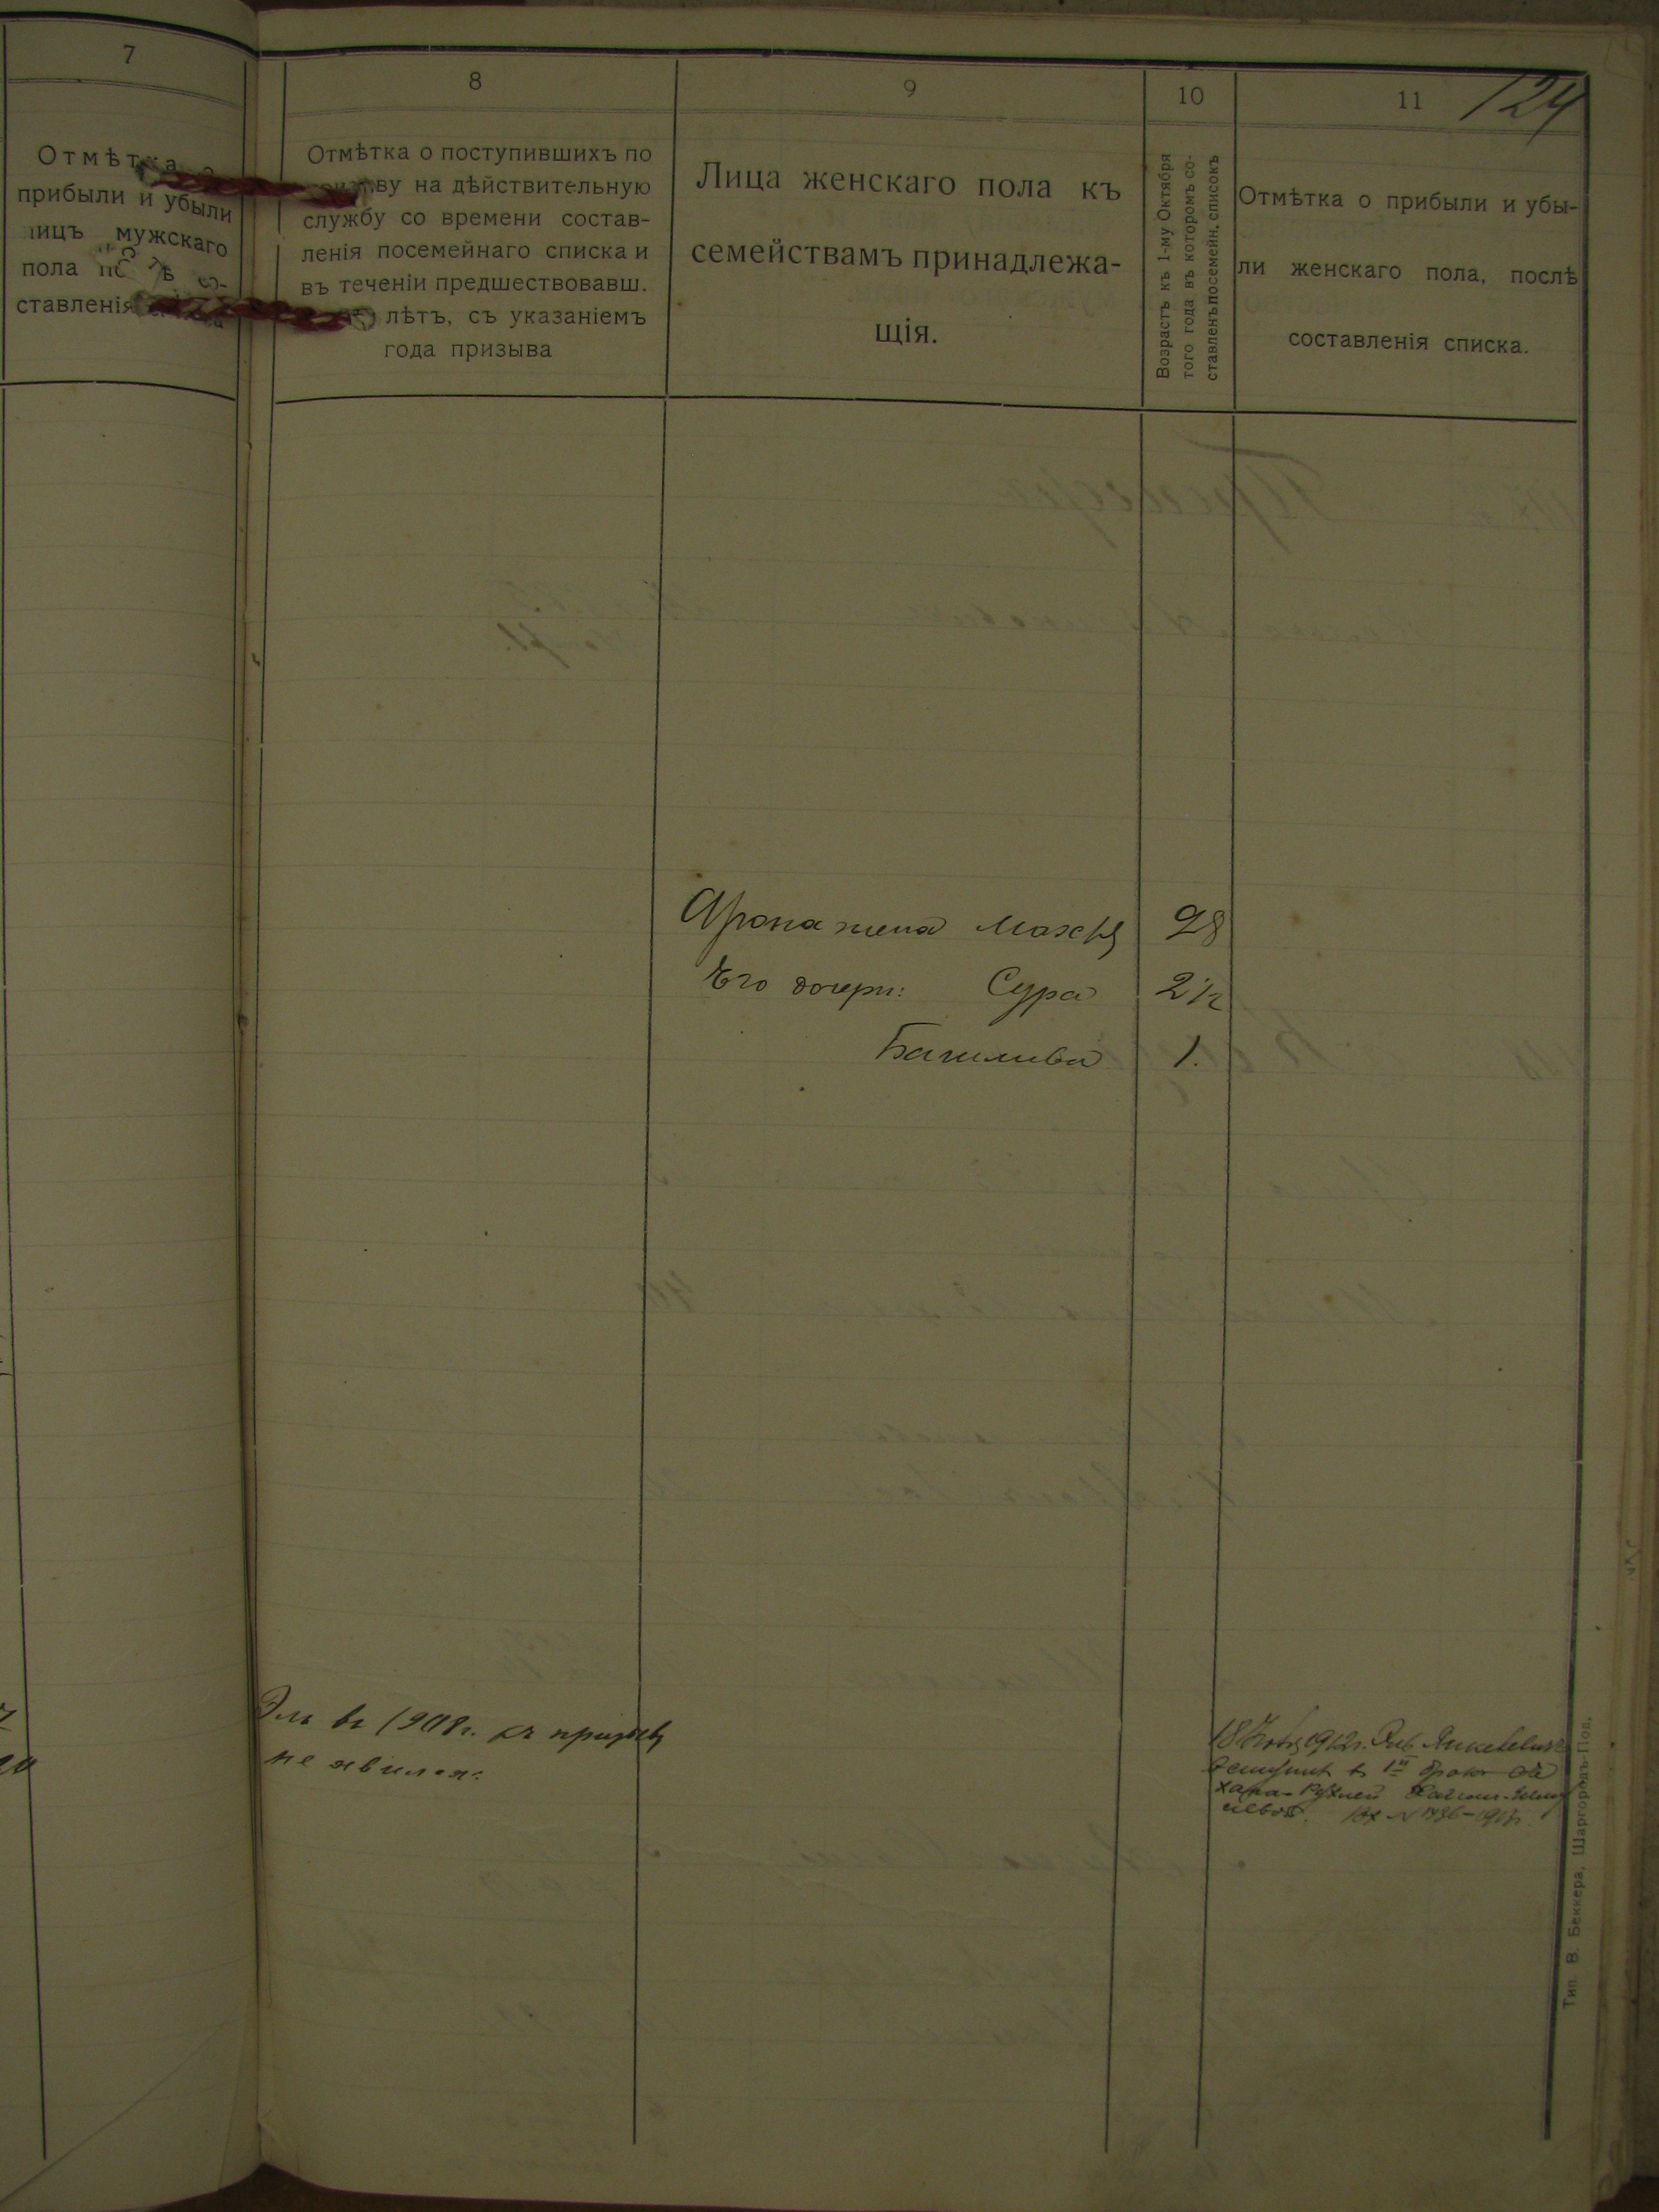 7
Отмѣтка о
прибыли и убыли
лицъ мужскаго
пола
ставленія
8
Отмѣтка о поступившихъ по
призыву на дѣйствительную
службу со времени состав-
ленія посемейнаго списка и
въ теченіи предшествовавш.
лѣтъ, съ указаніемъ
года призыва
9
Лица женскаго пола къ
семействамъ принадлежа-
щія.
10
Возрастъ къ 1-му Октября
того года въ которомъ со-
ставленъ посемейн. списокъ
11
124
Отмѣтка о прибыли и убы-
ли женскаго пола, послѣ
составленія списка.
Арона жена 28
Его дочери: Сура 2½
Башшива 1.
въ 1908г. къ призыву
не явился.
1912г.
въ 1й бракъ
Тип. В. Беккера, Шаргородъ-Под.